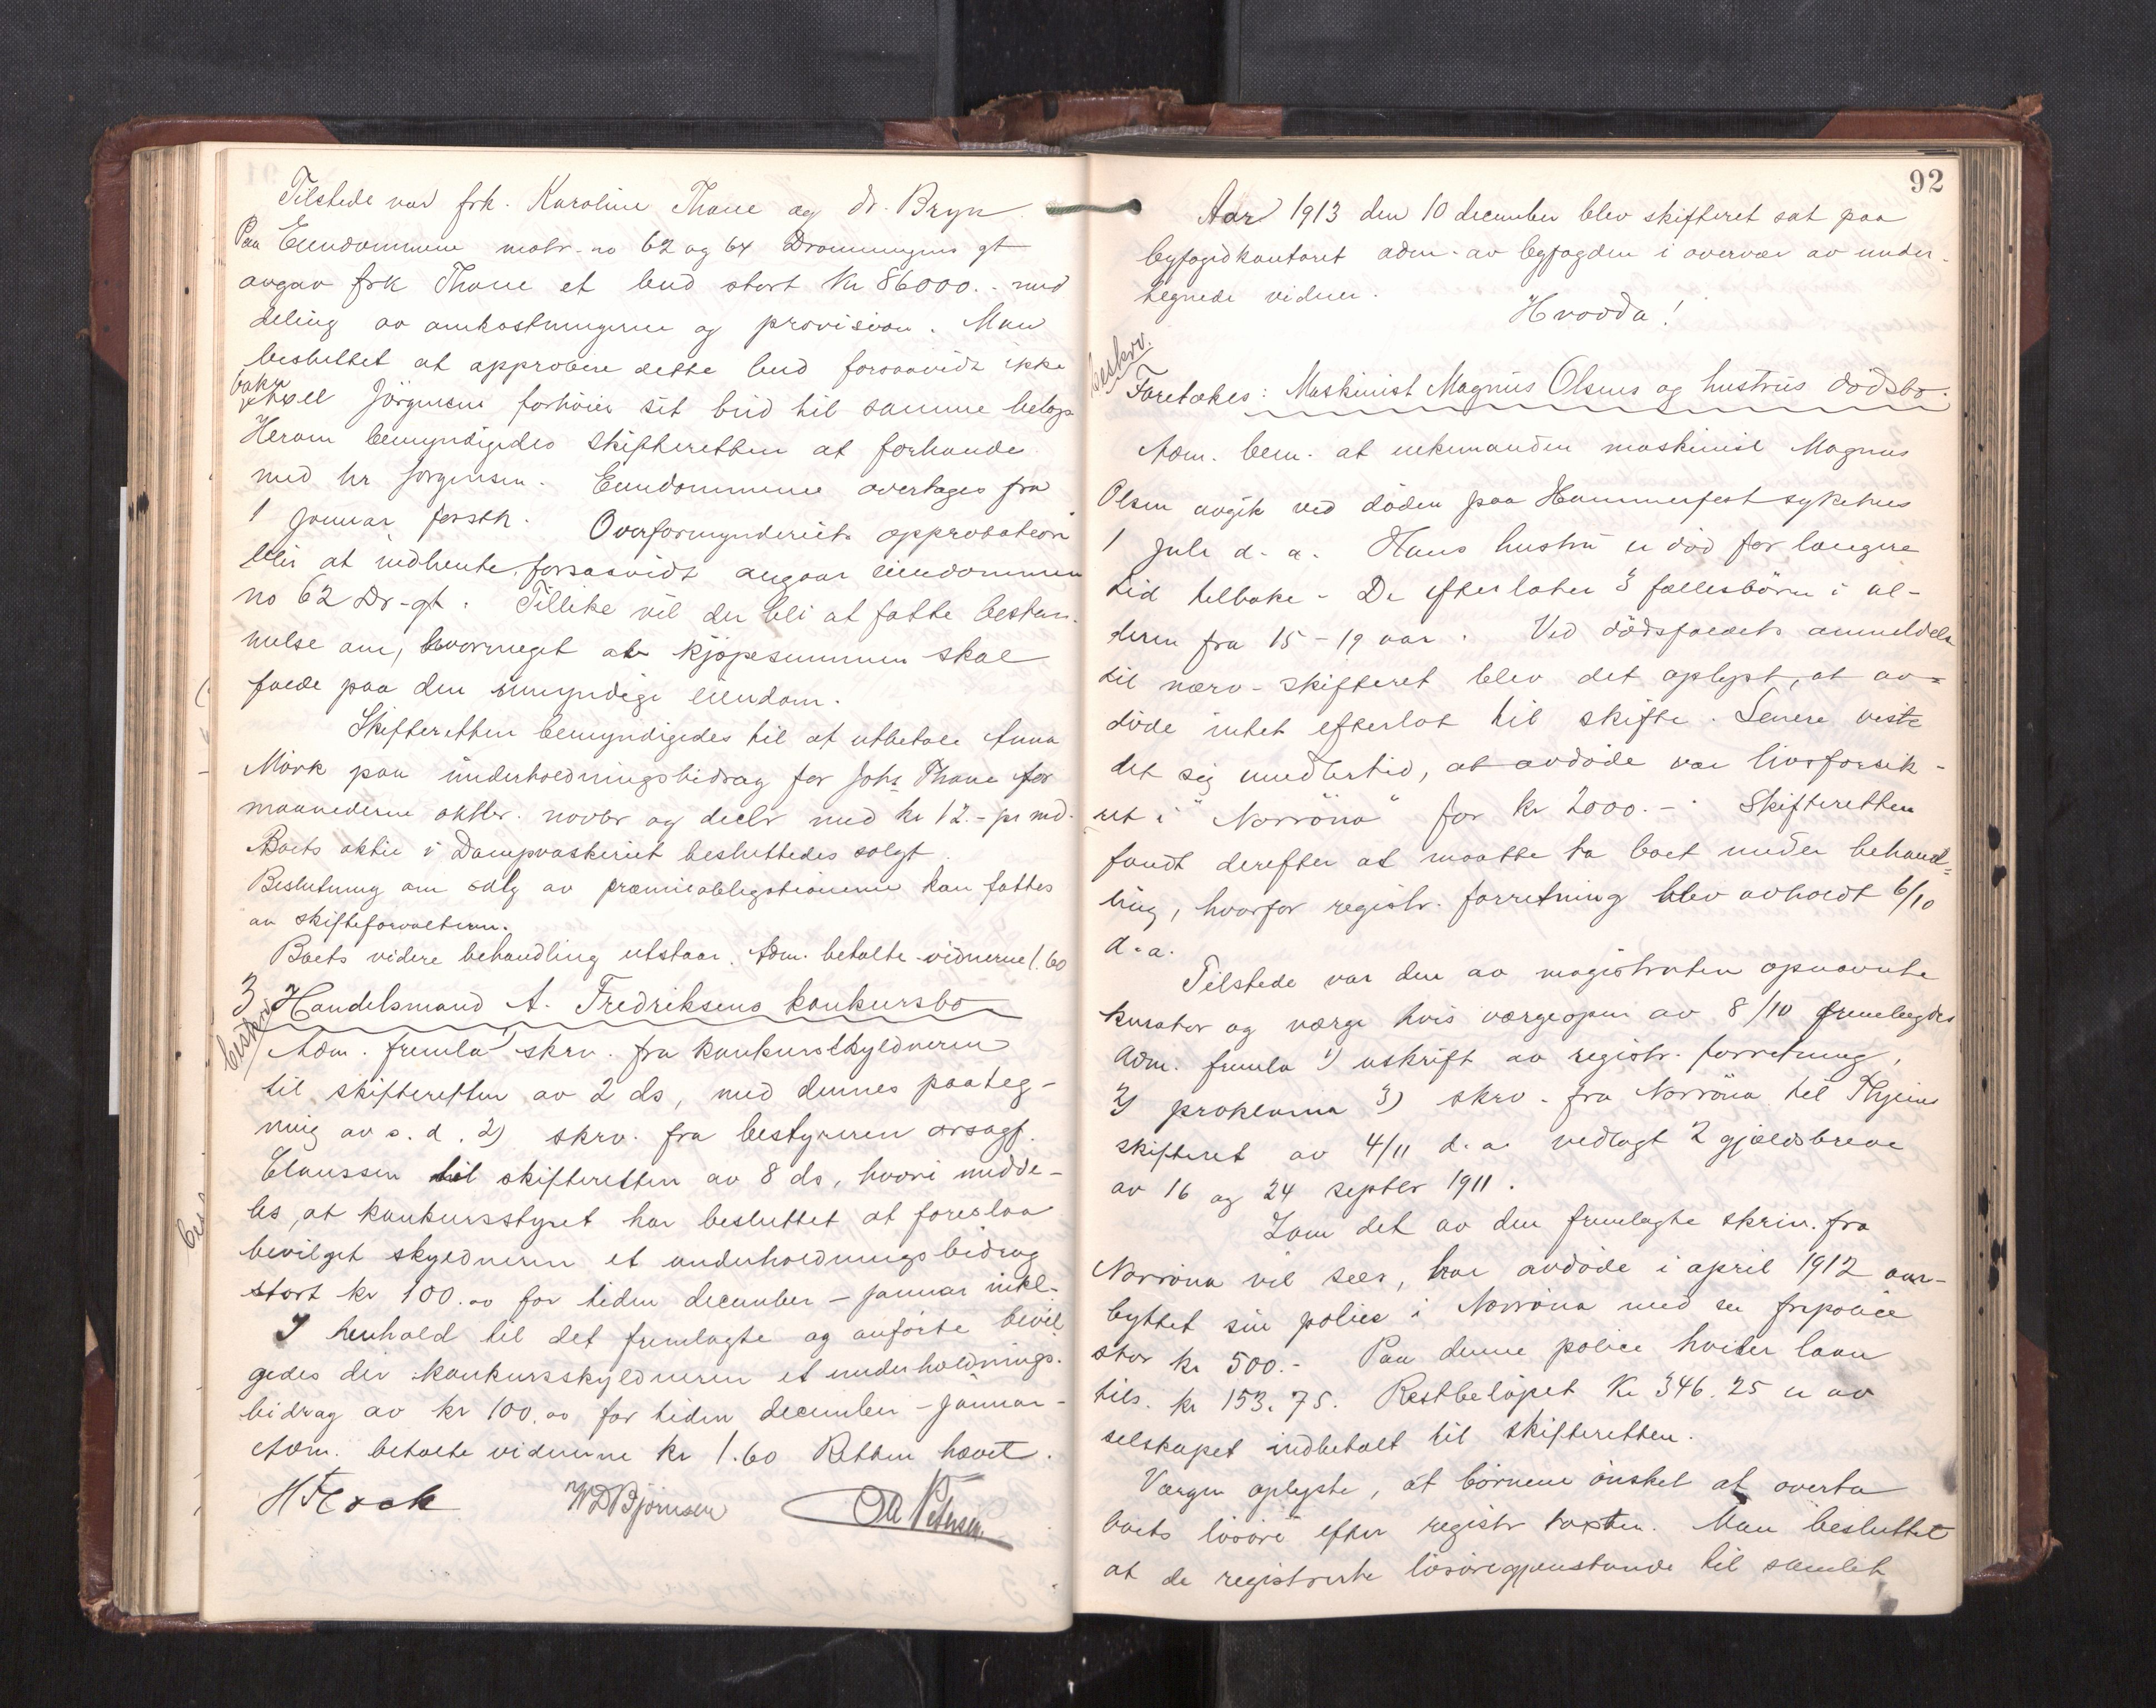 Tilstede var frk. Karoline Thane og dr. Bryn.
Paa Eiendommene matr. no 62 og 64 Dronningens gt
avgav frk Thane et bud stort Kr 86000.- med
deling av omkostningerne og provision. Man
besluttet at approbere dette bud forsaavidt ikke
Jörgensen forhöier sit bud til samme belöp
Herom bemyndigedes skifteretten at forhandle
med hr Jorgensen. Eiendommene overtages fra
1 Januar førstk. Overformynderiets approbation
blir at indhente forsaavidt angaar eiendommen
no 62 Dr-gt. Tillike vil der bli at fatte bestem-
melse om, hvormeget av kjöpesummen skal
falde paa den umyndige eiendom.
Skifteretten bemyndigedes til at utbetale Anna
Mörk paa underholdningsbidrag for Johs Thane for
maanederne oktbr. novbr og decbr med kr 12.- pr md.
Boets aktie i Dampvaskeriet besluttedes solgt.
Beslutning om salg av præmieobligationerne kan fattes
av skifteforvalteren.
Boets videre behandling utstaar. Adm. betalte vidnerne 1.60
3 Handelsmand A. Fredriksens konkursbo
beskr.
Adm. fremla 1) skrv. fra konkursskyldneren
til skifteretten av 2 ds, med dennes paateg-
ning av s. d. 2) skrv. fra bestyreren orsagf.
Claussen til skifteretten av 8 ds, hvori medde-
les, at konkursstyret har besluttet at foreslaa
bevilget skyldneren et underholdningsbidrag
stort kr 100.00 for tiden december - januar inkl.
I henhold til det fremlagte og anförte bevil-
gedes der konkursskyldneren et underholdnings-
bidrag av kr 100.00 for tiden december - januar -
Adm. betalte vidnerne kr 1.60 Retten hævet.
WDBjörnsen Petersen
92
Aar 1913 den 10 december blev skifteret sat paa
byfogedkontoret adm. av byfogden i overvær av under-
tegnede vidner.
Hvorda!
beskr.
Foretakes: Maskinist Magnus Olsens og hustrus dödsbo.
Adm. bem. at enkemanden maskinist Magnus
Olsen avgik ved döden paa Hammerfest sykehus
1 Juli d. a. Hans hustru er död for længere
tid tilbake. De efterlater 3 fællesbörn i al-
deren fra 15 - 19 aar. Ved dödsfaldets anmeldelse
til nærv. skifteret blev det oplyst, at av-
döde intet efterlot til skifte. Senere viste
det sig imidlertid, at avdöde var livsforsik-
ret i "Norröna" for kr 2000.-. Skifteretten
fandt derefter at maatte ta boet under behand-
ling, hvorfor registr. forretning blev avholdt 6/10
d. a.
Tilstede var den av magistraten opnævnte
kurator og værge hvis værgeopn av 8/10 fremlægdes
Adm. fremla 1) utskrift av registr. forretning,
2) proklama 3) skrv. fra Norröna til Thjems
skifteret av 4/11 d. a. vedlagt 2 gjældsbreve
av 16 og 24 septbr 1911.
Som det av den fremlagte skriv. fra
Norröna vil sees, har avdöde i april 1912 om-
byttet sin police i Norröna med en fripolice
stor kr 500.- Paa denne police hviler laan
tils. kr 153.75. Restbelöpet Kr 346.25 er av
selskapet indbetalt til skifteretten.
Værgen oplyste, at börnene önsket at overta
boets lösöre efter registr taxten. Man besluttet
at de registrerte lösöregjenstande til samlet